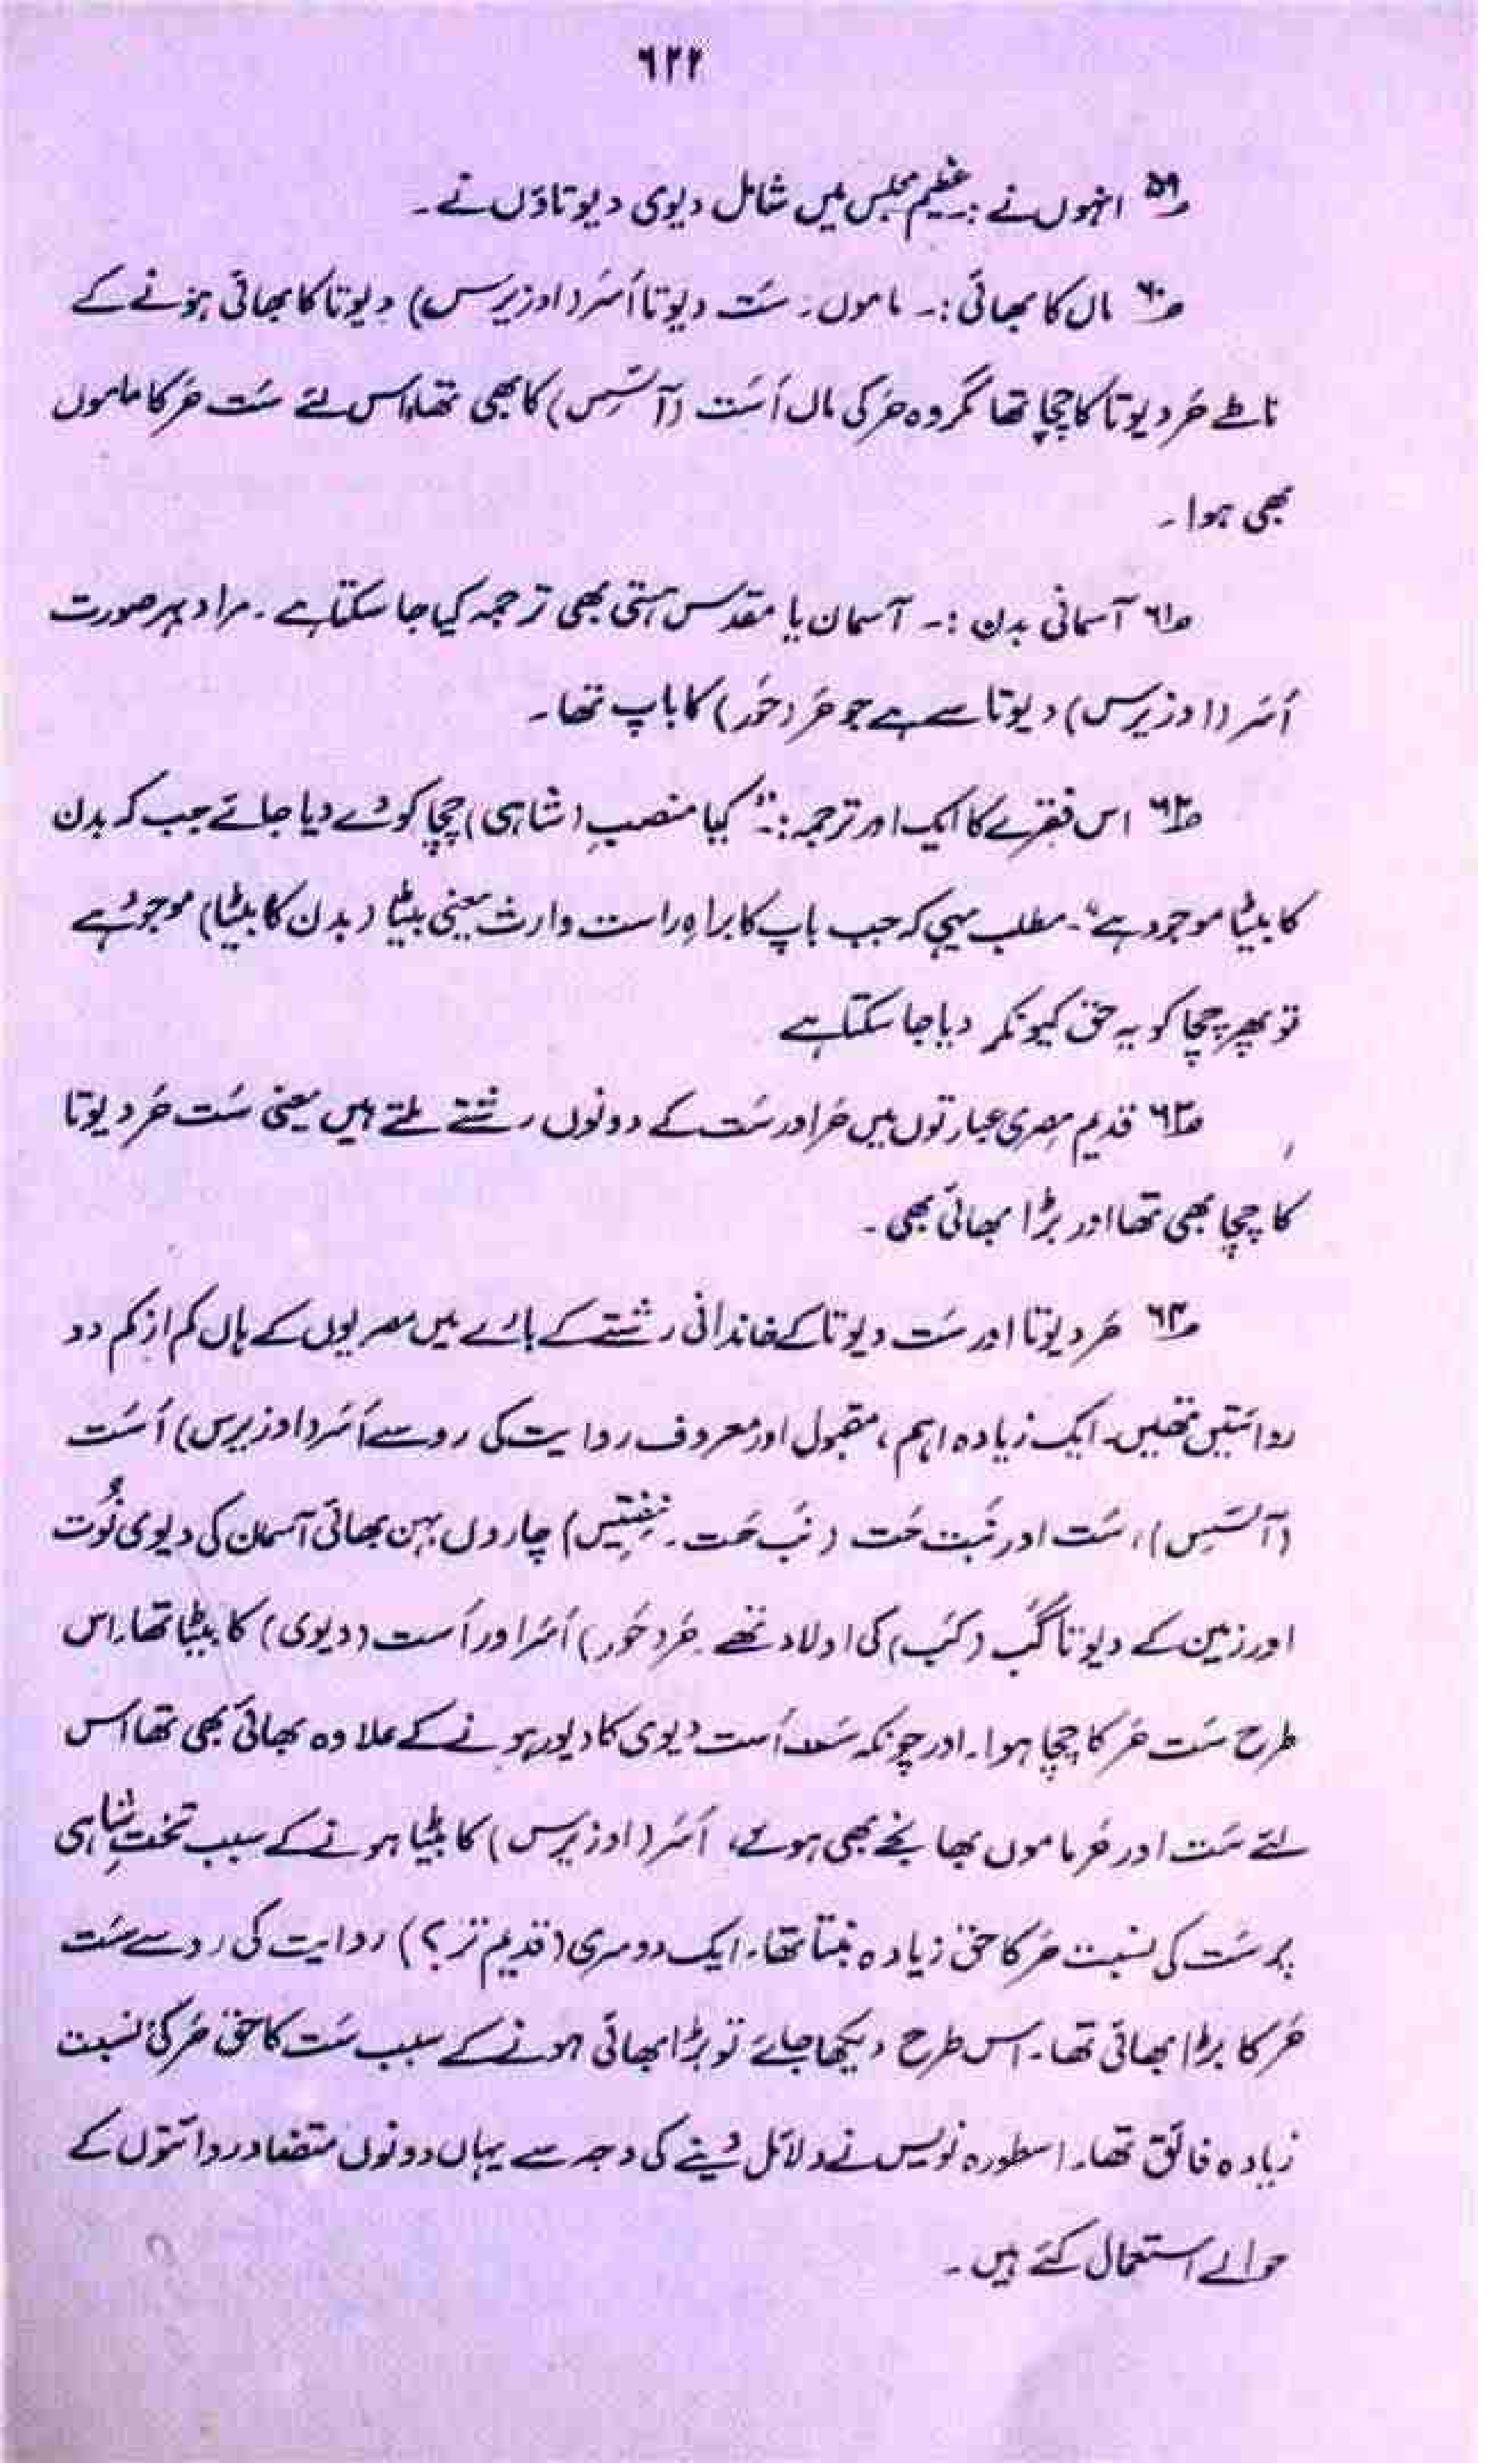 ۶۲۲
۵۹ انہوں نے :۔ عظیم مجلس میں شامل دیوی دیوتاؤں نے۔
۶۰ ماں کا بھائی :۔ ماموں۔ سَت دیوتا اُسَر (اوزیرس) دیوتا کا بھائی ہونے کے
ناطے حَر دیوتا کا چچا تھا مگر وہ حَر کی ماں اُسَت (آئسِس) کا بھی تھا، اس لئے سَت حَر کا ماموں
بھی ہوا۔
۶۱ آسمانی بدن :۔ آسمان یا مقدس ہستی بھی ترجمہ کیا جا سکتا ہے۔ مراد بہرصورت
اُسَر (اوزیرس) دیوتا سے ہے جو حَر (حَور) کا باپ تھا۔
۶۲ اس فقرے کا ایک اور ترجمہ :۔ "کیا منصبِ (شاہی) چچا کو دے دیا جائے جب کہ بدن
کا بیٹا موجود ہے"۔ مطلب یہی کہ جب باپ کا براہِ راست وارث یعنی بیٹا (بدن کا بیٹا) موجود ہے
تو پھر چچا کو یہ حق کیونکر دیا جا سکتا ہے
۶۳ قدیم مصری عبارتوں میں حَر اور سَت کے دونوں رشتے ملتے ہیں یعنی سَت حَر دیوتا
کا چچا بھی تھا اور بڑا بھائی بھی۔
۶۴ حَر دیوتا اور سَت دیوتا کے خاندانی رشتے کے بارے میں مصریوں کے ہاں کم از کم دو
روائتیں تھیں۔ ایک زیادہ اہم، مقبول اور معروف روایت کی رو سے اُسَر (اوزیرس) اُسَت
(آئسِس)، سَت اور نَبت حَت (نَب حَت۔ نِفتِیس) چاروں بہن بھائی آسمان کی دیوی نُوت
اور زمین کے دیوتا گَب (کَب) کی اولاد تھے۔ حَر (حَور) اُسَر اور اُست (دیوی) کا بیٹا تھا۔ اس
طرح سَت حَر کا چچا ہوا۔ اور چونکہ سَت اُست دیوی کا دیور ہونے کے علاوہ بھائی بھی تھا اس
لئے سَت اور حَر ماموں بھانجے بھی ہوئے، اُسَر (اوزیرس) کا بیٹا ہونے کے سبب تختِ شاہی
پر سَت کی نسبت حَر کا حق زیادہ بنتا تھا۔ ایک دوسری (قدیم تر؟) روایت کی رو سے سَت
حَر کا بڑا بھائی تھا۔ اس طرح دیکھا جائے تو بڑا بھائی ہونے کے سبب سَت کا حق حَر کی نسبت
زیادہ فائق تھا۔ اسطورہ نویس نے دلائل دینے کی وجہ سے یہاں دونوں متضاد روائتوں کے
حوالے استعمال کئے ہیں۔